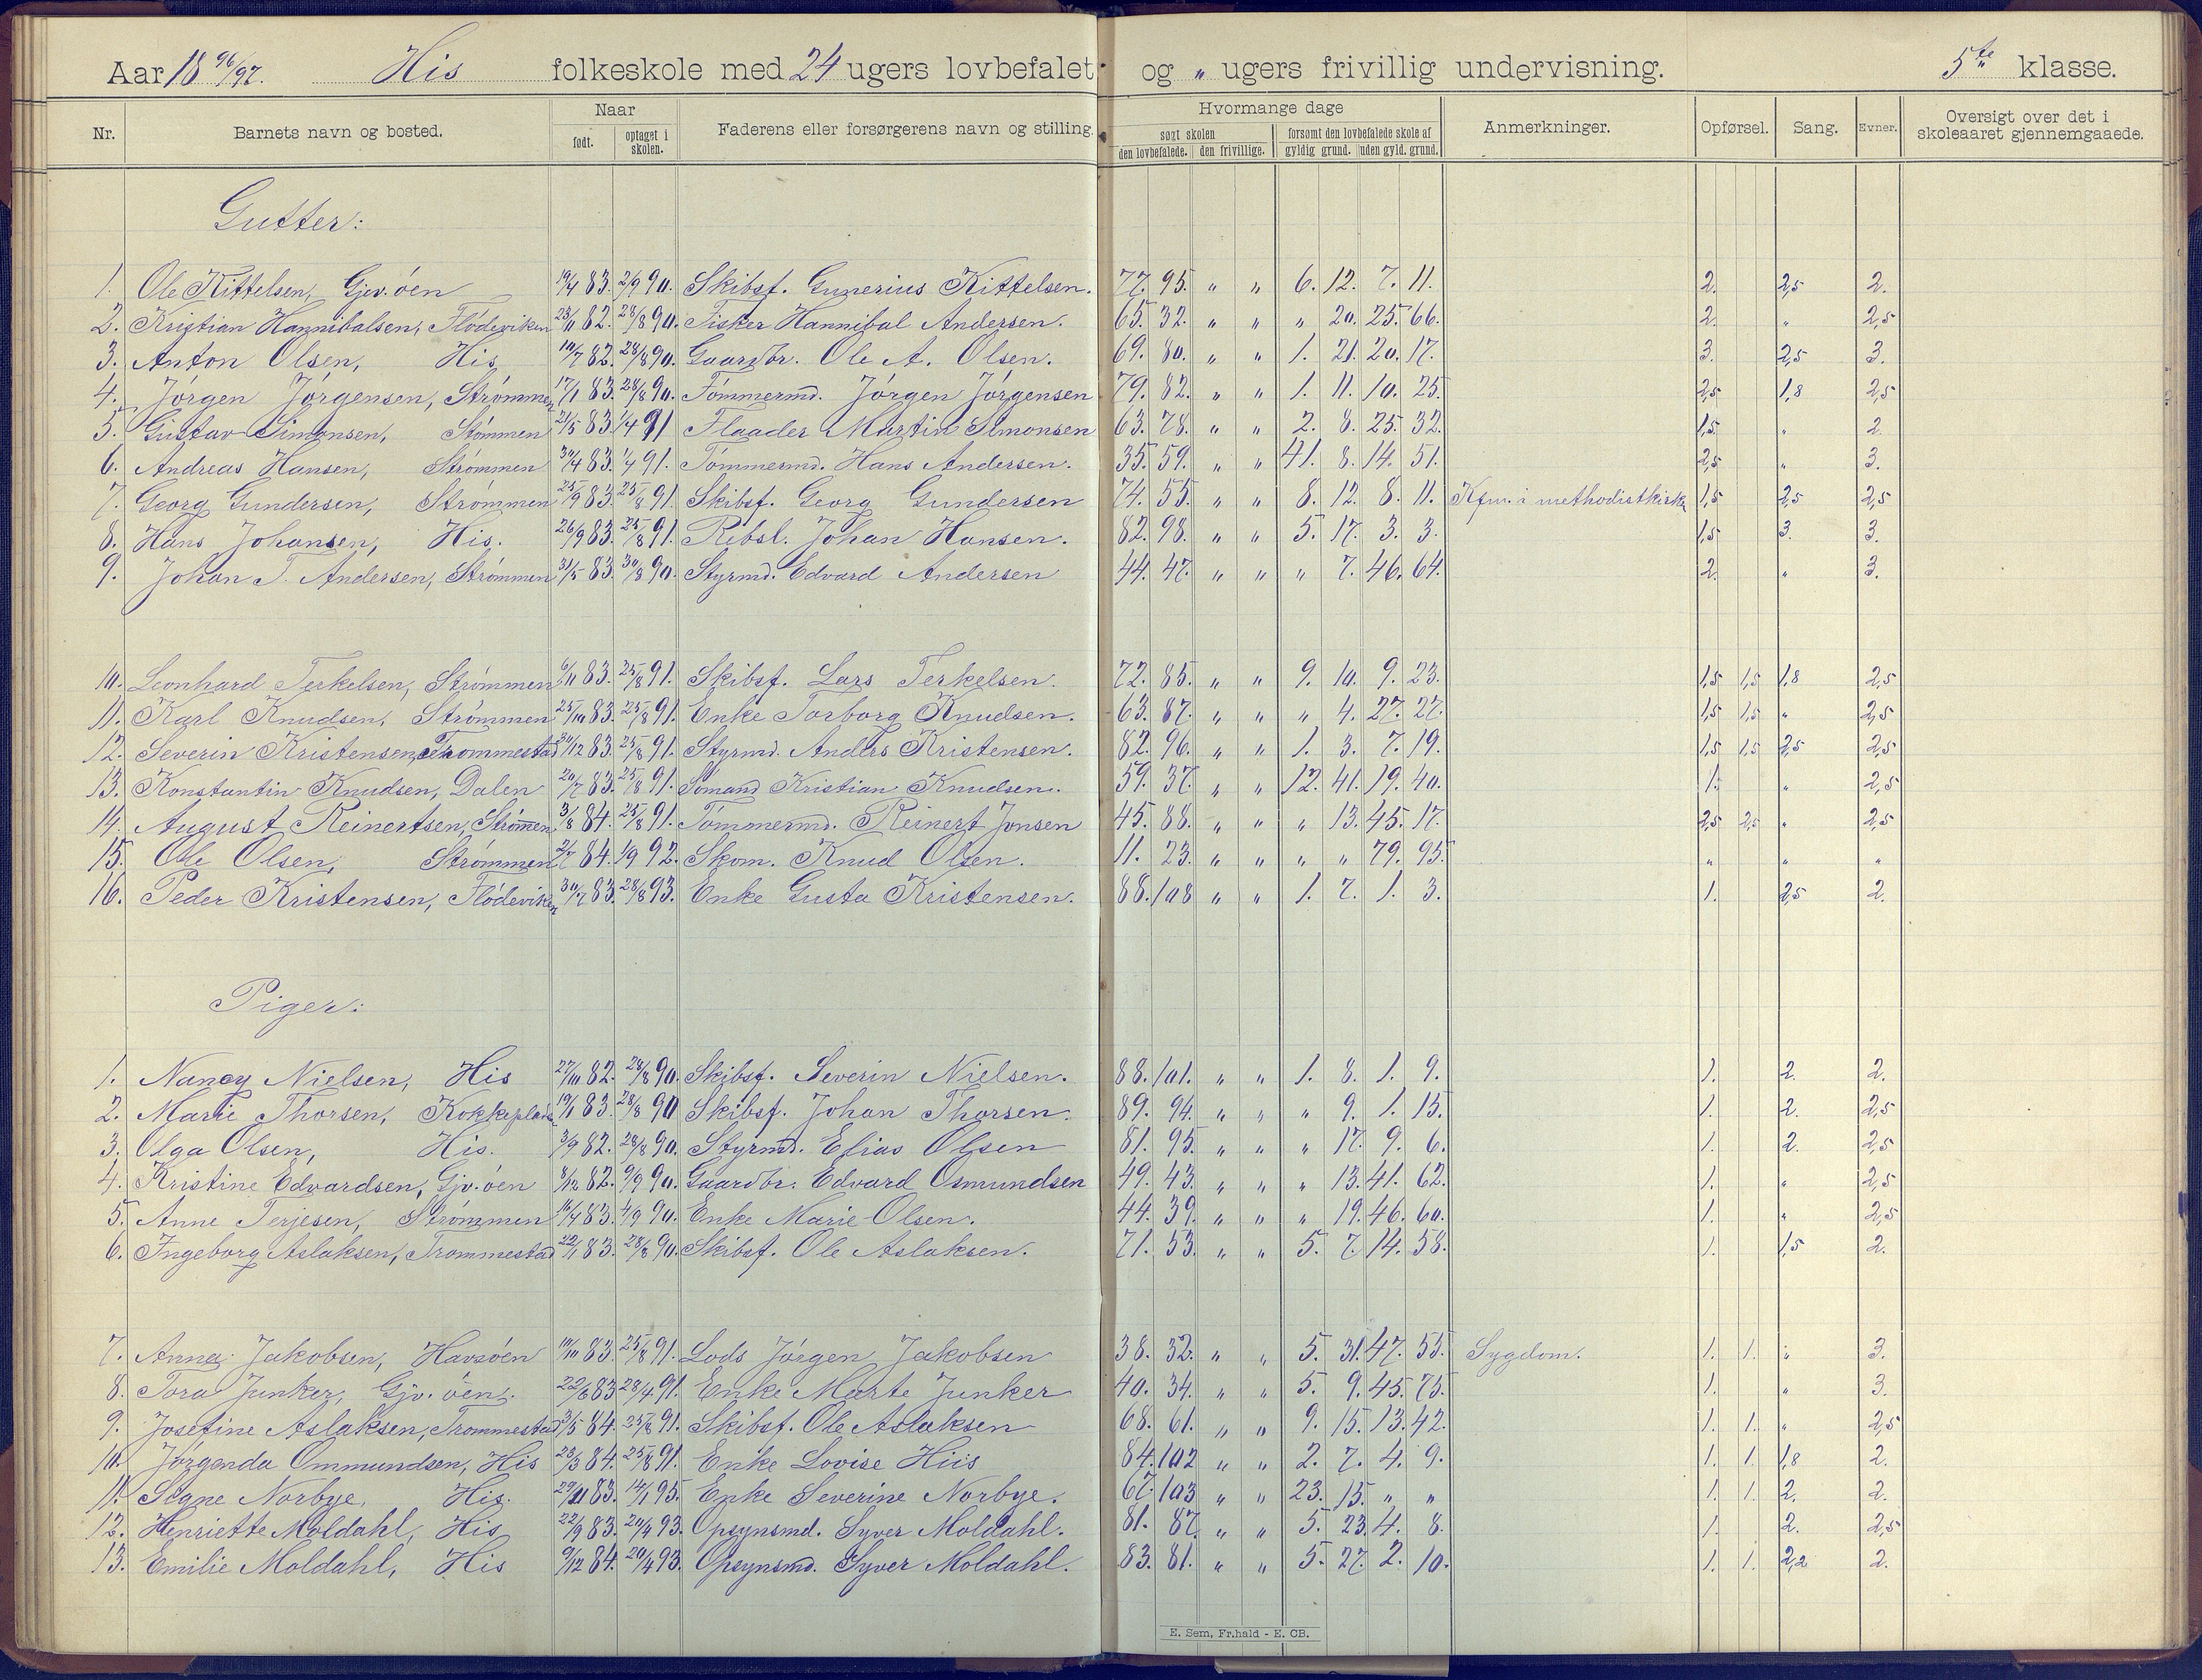 Aar 18 96/97. His folkeskole med 24 ugers lovbefalet og " ugers frivillig undervisning. 5te klasse.
Nr. Barnets navn og bosted. Naar født. optaget i skolen. Faderens eller forsørgerens navn og stilling. Hvormange dage søgt skolen den lovbefalede. den frivillige. forsømt den lovbefalede skole af gyldig grund. uden gyld. grund. Anmerkninger. Opførsel. Sang. Evner. Oversigt over det i skoleaaret gjennemgaaede.
Gutter:
1. Ole Kittelsen, Gjev. öen 19/4 83. 2/9 90. Skibsf. Gunerius Kittelsen. 77. 95. " " 6. 12. 7. 11. 2. 2,5 2.
2. Kristian Hannibalsen, Flödeviken 23/11 82. 28/8 90. Fisker Hannibal Andersen. 65. 32. " " " 20. 25. 66. 2. " 2,5
3. Anton Olsen, His 10/7 82. 28/8 90. Gaardbr. Ole A. Olsen. 69. 80. " " 1. 21. 20. 17. 3. 2,5 3.
4. Jörgen Jörgensen, Strömmen 17/1 83. 28/8 90. Tömmermd. Jörgen Jörgensen 79. 82. " " 1. 11. 10. 25. 2,5 1,8 2,5
5. Gustav Simonsen, Stömmen 21/5 83 1/4 91 Flaader Martin Simonsen 63. 78. " " 2. 8. 25. 32. 1,5 " 2.
6. Andreas Hansen, Strömmen 30/4 83. 1/4 91. Tömmermd. Hans Andersen. 35. 59. " " 41. 8. 14. 51. 2,5 " 3.
7. Georg Gundersen, Strömmen 25/9 83. 25/8 91. Skibsf. Georg Gundersen 74. 55. " " 8. 12. 8. 11. Kfm. i methodistkirke 1,5 2,5 2,5
8. Hans Johansen, His. 26/9 83. 25/8 91. Rebsl. Johan Hansen. 82. 98. " " 5. 17. 3. 3. 1,5 3. 3.
9. Johan T. Andersen, Strömmen 31/5 83. 30/8 90. Styrmd. Edvard Andersen 44. 47. " " " 7. 46. 64. 2. " 3.
10. Leonhard Terkelsen, Strömmen 6/11 83. 25/8 91. Skibsf. Lars Terkelsen. 72. 85. " " 9. 10. 9. 23. 1,5 1,5 1,8 2,5
11. Karl Knudsen, Strömmen 25/10 83. 25/8 91. Enke Torborg Knudsen. 63. 87. " " " 4. 27. 27. 1,5 1,5 " 2,5
12. Severin Kristensen, Trommestad 30/12 83. 25/8 91. Styrmd. Anders Kristensen. 82. 96. " " 1. 3. 7. 19. 1,5 1,5 2,5 2,5
13. Konstantin Knudsen, Dalen 20/7 83. 25/8 91. Sömand Kristian Knudsen. 59. 37. " " 12. 41. 19. 40. 1. " 2,5
14. August Reinertsen, Strömmen 3/8 84. 25/8 91. Tömmermd. Reinert Jonsen 45. 88. " " " 13. 45. 17. 2,5 2,5 " 2,5
15. Ole Olsen, Strömmen 84. 1/9 92. Skom. Knud Olsen. 11. 23. " " " " 79. 95. " " "
16. Peder Kristensen, Flödeviken 30/7 83. 28/8 93. Enke Gusta Kristensen. 88. 108 " " 1. 7. 1. 3. 1. 2,5 2.
Piger:
1. Nancy Nielsen, His 27/10 82. 28/8 90. Skibsf. Severin Nielsen. 88. 101. " " 1. 8. 1. 9. 1. 2. 2.
2. Marie Thorsen, Kokkeplads 19/1 83. 28/8 90 Skibsf. Johan Thorsen. 89. 94. " " " 9. 1. 15. 1. 2. 2,5
3. Olga Olsen, His. 3/9 82. 28/8 90. Styrmd. Elias Olsen 81. 95. " " " 17. 9. 6. 1. 2. 2,5
4. Kristine Edvardsen, Gjv. öen 8/12 82. 9/9 90. Gaardbr. Edvard Osmundsen 49. 43. " " " 13. 41. 62. 1. " 2,5
5. Anne Terjesen, Strömmen 16/4 83. 4/9 90. Enke Marie Olsen. 44. 39. " " " 19. 46. 60. 1. " 2,5
6. Ingeborg Aslaksen, Trommestad 22/1 83. 28/8 90. Skibsf. Ole Aslaksen. 71. 53. " " 5. 7. 14. 58. 1. 1,5 2.
7. Anna Jakobsen, Havsöen 10/10 83. 25/8 91. Lods Jörgen Jakobsen 38. 32. " " 5. 31. 47. 55. Sygdom. 1. 1. " 3.
8. Tora Junker, Gjv. öen. 22/6 83 28/4 91. Enke Marte Junker 40. 34. " " 5. 9. 45. 75. 1. " 3.
9. Josefine Aslaksen, Trommestad 3/5 84. 25/8 91. Skibsf. Ole Aslaksen 68. 61. " " 9. 15. 13. 42. 1. 1. " 2,5
10. Jörganda Ommundsen, His 23/3 84. 25/8 91. Enke Lovise Hiis 84. 102 " " 2. 7. 4. 9. 1. 1. 1,8 2.
11. Signe Norbye, His. 29/11 83. 14/1 95. Enke Severine Norbye. 67. 103 " " 23. 15. " " 1. 1. 2. 2.
12. Henriette Moldahl, His 22/9 83. 20/4 93. Opsynsmd. Syver Moldahl. 81. 87. " " 5. 23. 4. 8. 1. 2. 2,5
13. Emilie Moldahl, His 9/12 84. 20/4 93. Opsynsmd. Syver Moldahl. 83. 81. " " 5. 27. 2. 10. 1. 1. 2,2 2.
E. Sem, Fr.hald - E. CB.